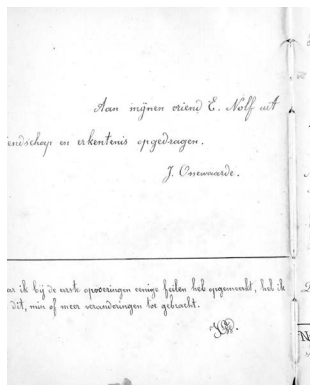 Aan mijnen vriend E. Nolf uit
iendschap en erkentenis opgedragen.
J. Onwaarde.
ar ik bij de eerste opvoeringen eenige feilen heb opgemerkt, heb ik
dit, min of meer veranderingen toe gebracht.